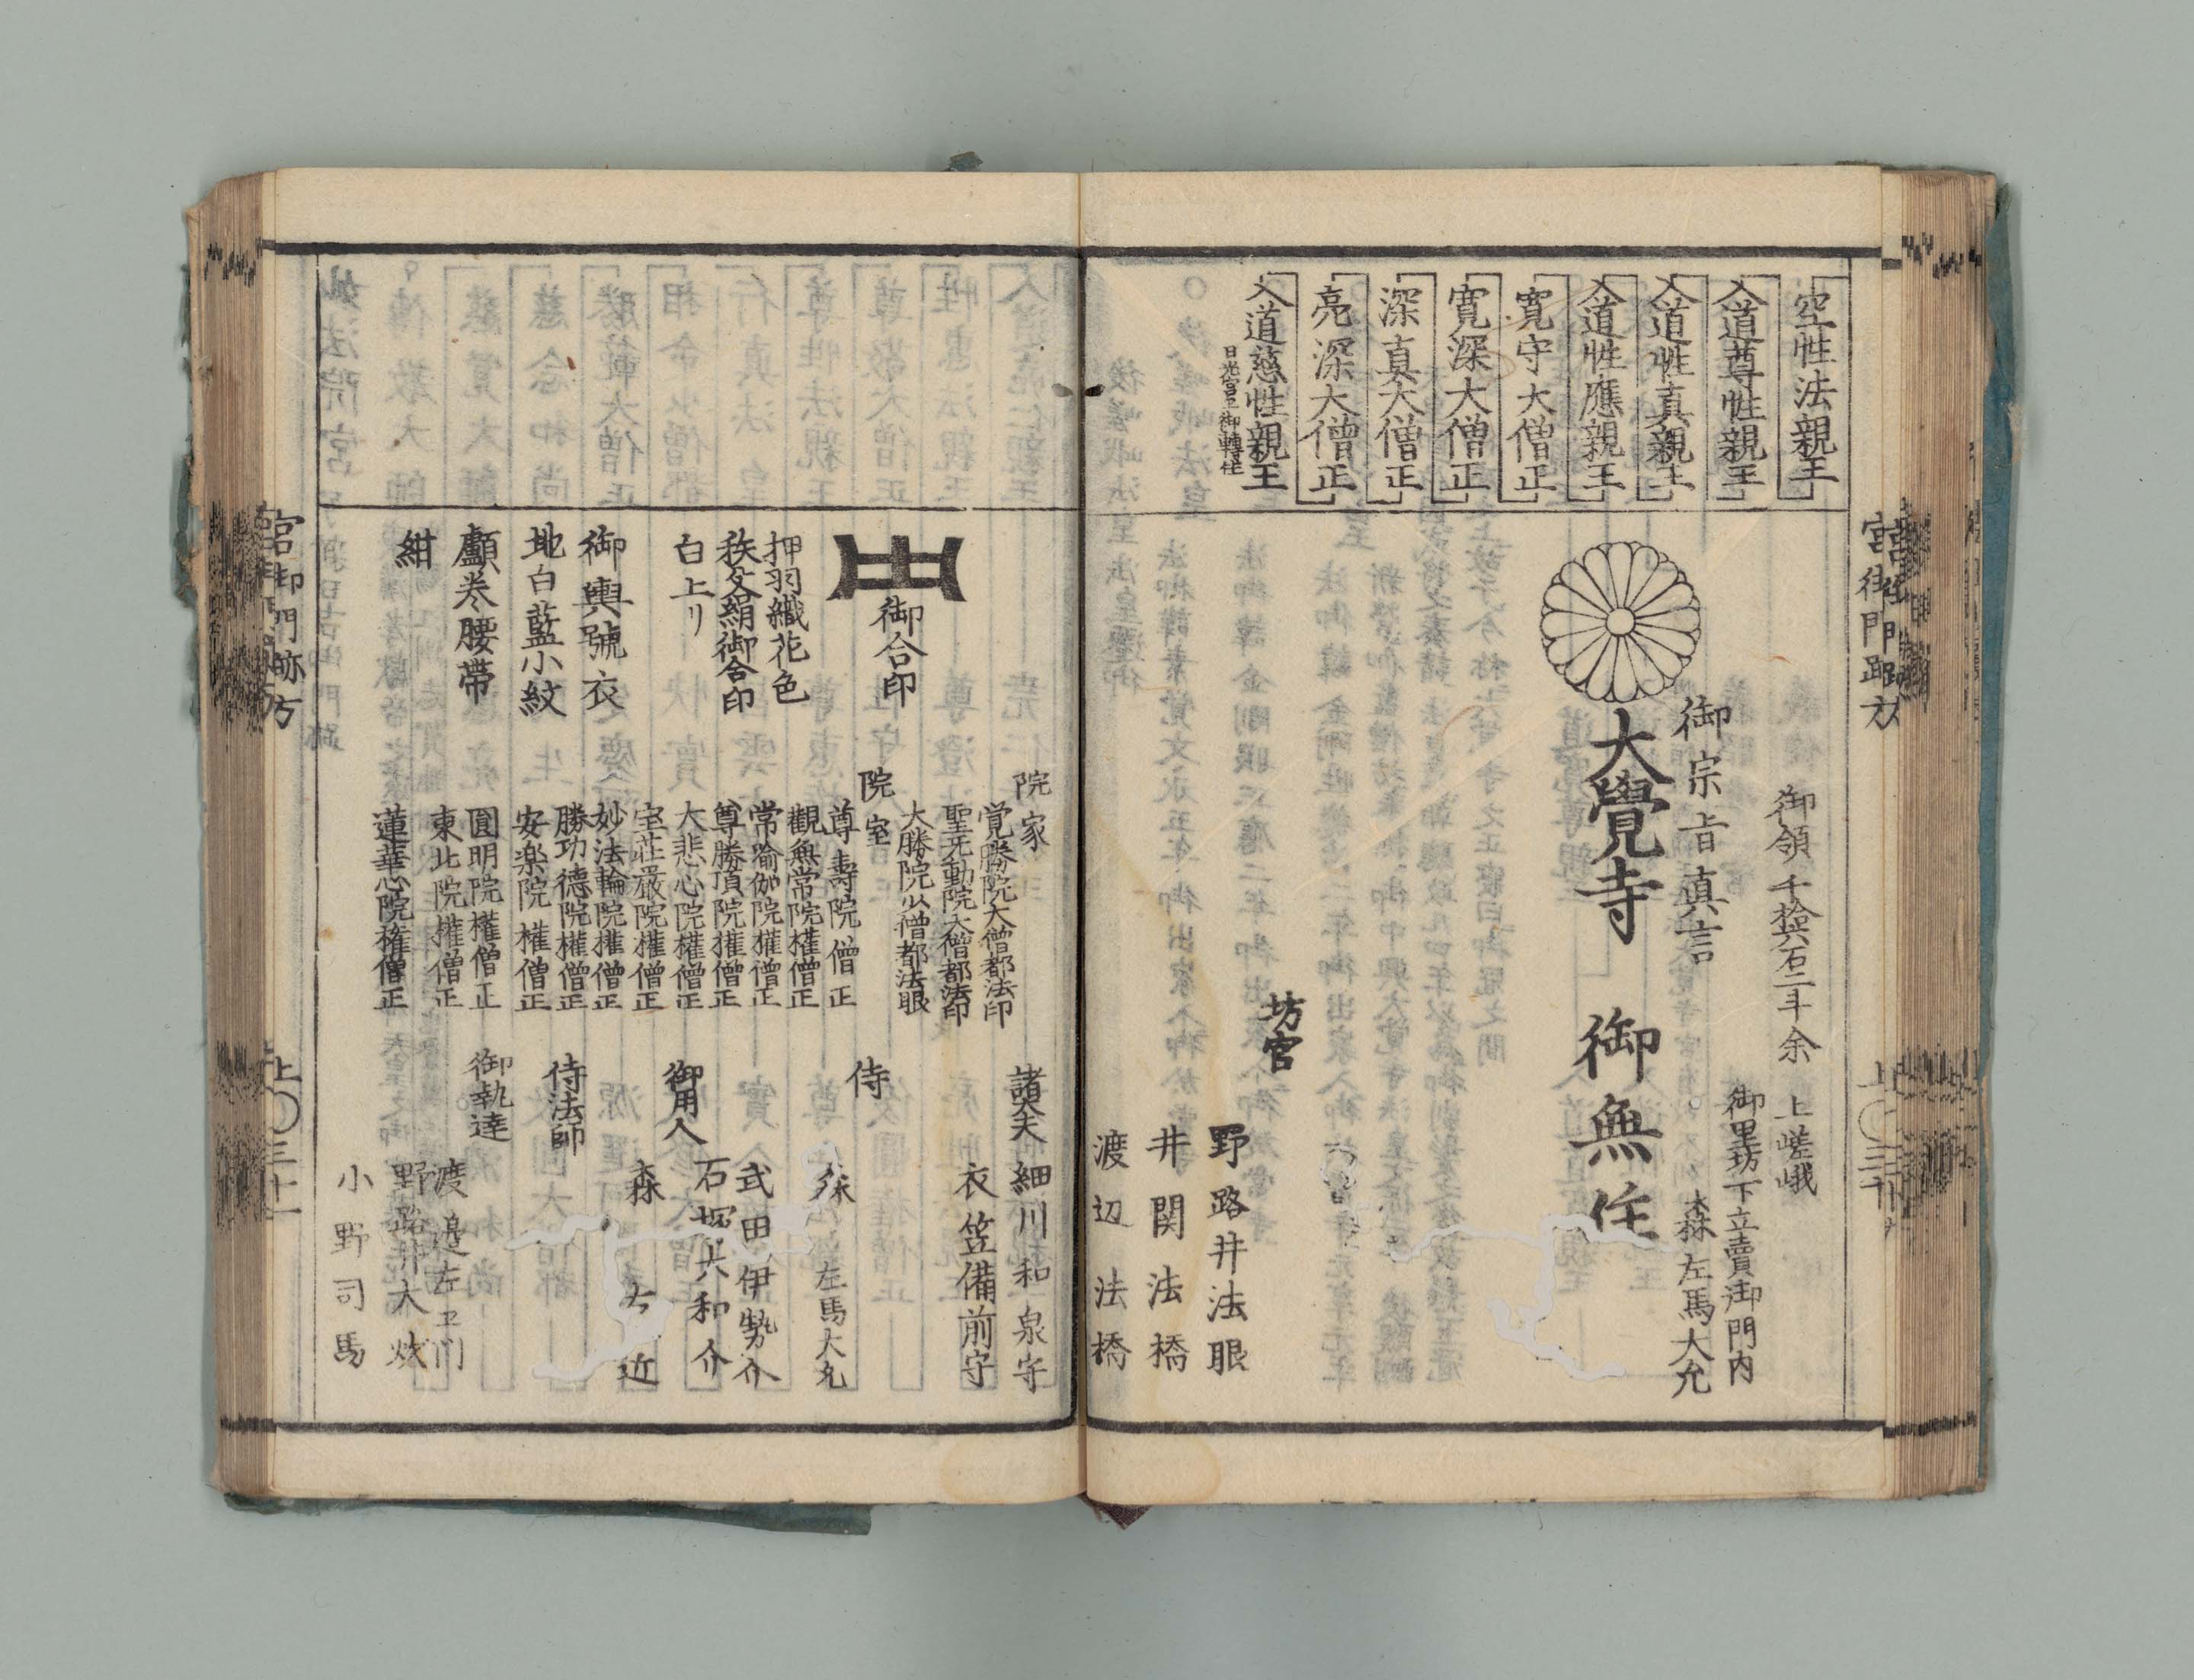 空性法親王
入道尊性親王
入道性真親王
入道性應親王
寛守大僧正
寛深大僧正
深真大僧正
亮深大僧正
入道慈性親王
日光宮工御轉住
御領千拾六石二斗余 上嵯峨
御里坊下立賣御門内
森左馬大允
御宗旨真言
大覺寺 御無住
坊官
野路井法眼
井関法橋
渡辺法橋
宮御門跡方
御合印
押羽織花色
秩父絹御合印
白上リ
御輿號衣
地白藍小紋
顱巻腰帯
紺
院家
覚勝院大僧都法印
聖无動院大僧都法印
大勝院少僧都法眼
院室
尊壽院僧正
觀無常院權僧正
常瑜伽院權僧正
尊勝頂院權僧正
大悲心院權僧正
宝莊嚴院權僧正
妙法輪院權僧正
勝功德院權僧正
安楽院權僧正
圓明院權僧正
東北院權僧正
蓮華心院權僧正
諸大夫
細川和泉守
衣笠備前守
侍
森左馬大允
御用人
武田伊勢介
石塚兵和介
森
近
侍法師
御執達
渡邉左衛門
野路井大炊
小野司馬
宮御門跡方
上〇三十一